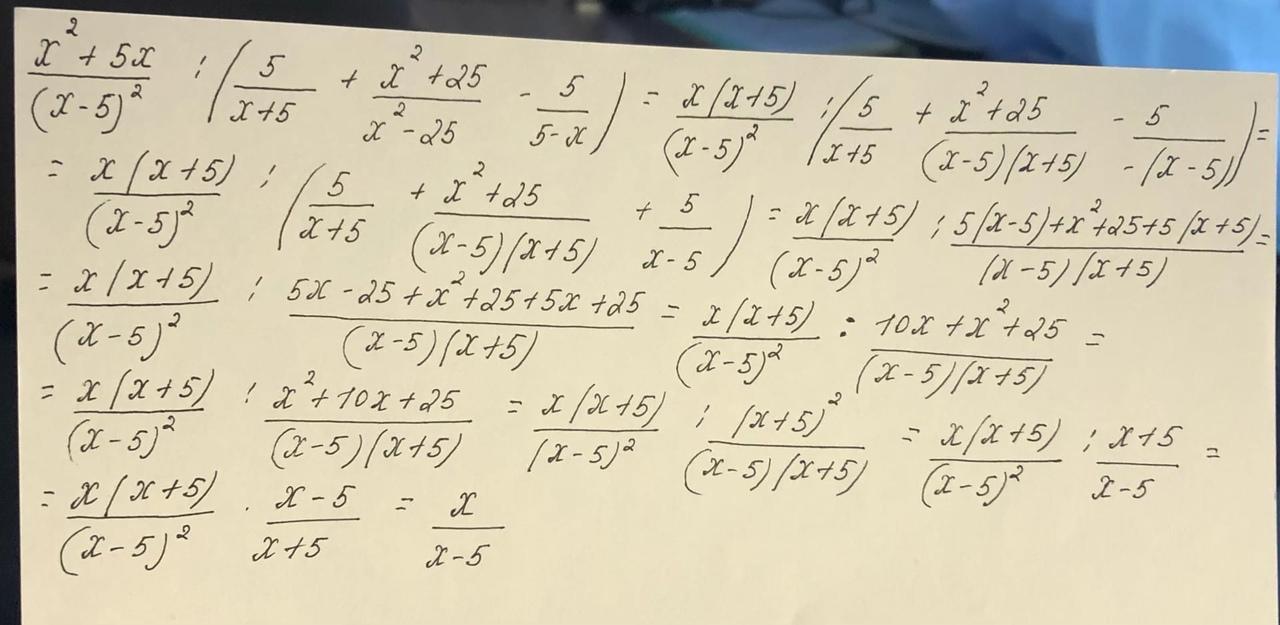 (x² + 5x)/(x-5)² : (5/(x+5) + (x²+25)/(x²-25) - 5/(5-x)) = x(x+5)/(x-5)² : (5/(x+5) + (x²+25)/((x-5)(x+5)) - 5/(-(x-5))) =
= x(x+5)/(x-5)² : (5/(x+5) + (x²+25)/((x-5)(x+5)) + 5/(x-5)) = x(x+5)/(x-5)² : (5(x-5)+x²+25+5(x+5))/((x-5)(x+5)) =
= x(x+5)/(x-5)² : (5x-25+x²+25+5x+25)/((x-5)(x+5)) = x(x+5)/(x-5)² : (10x+x²+25)/((x-5)(x+5)) =
= x(x+5)/(x-5)² : (x²+10x+25)/((x-5)(x+5)) = x(x+5)/(x-5)² : (x+5)²/((x-5)(x+5)) = x(x+5)/(x-5)² : (x+5)/(x-5) =
= x(x+5)/(x-5)² · (x-5)/(x+5) = x/(x-5)